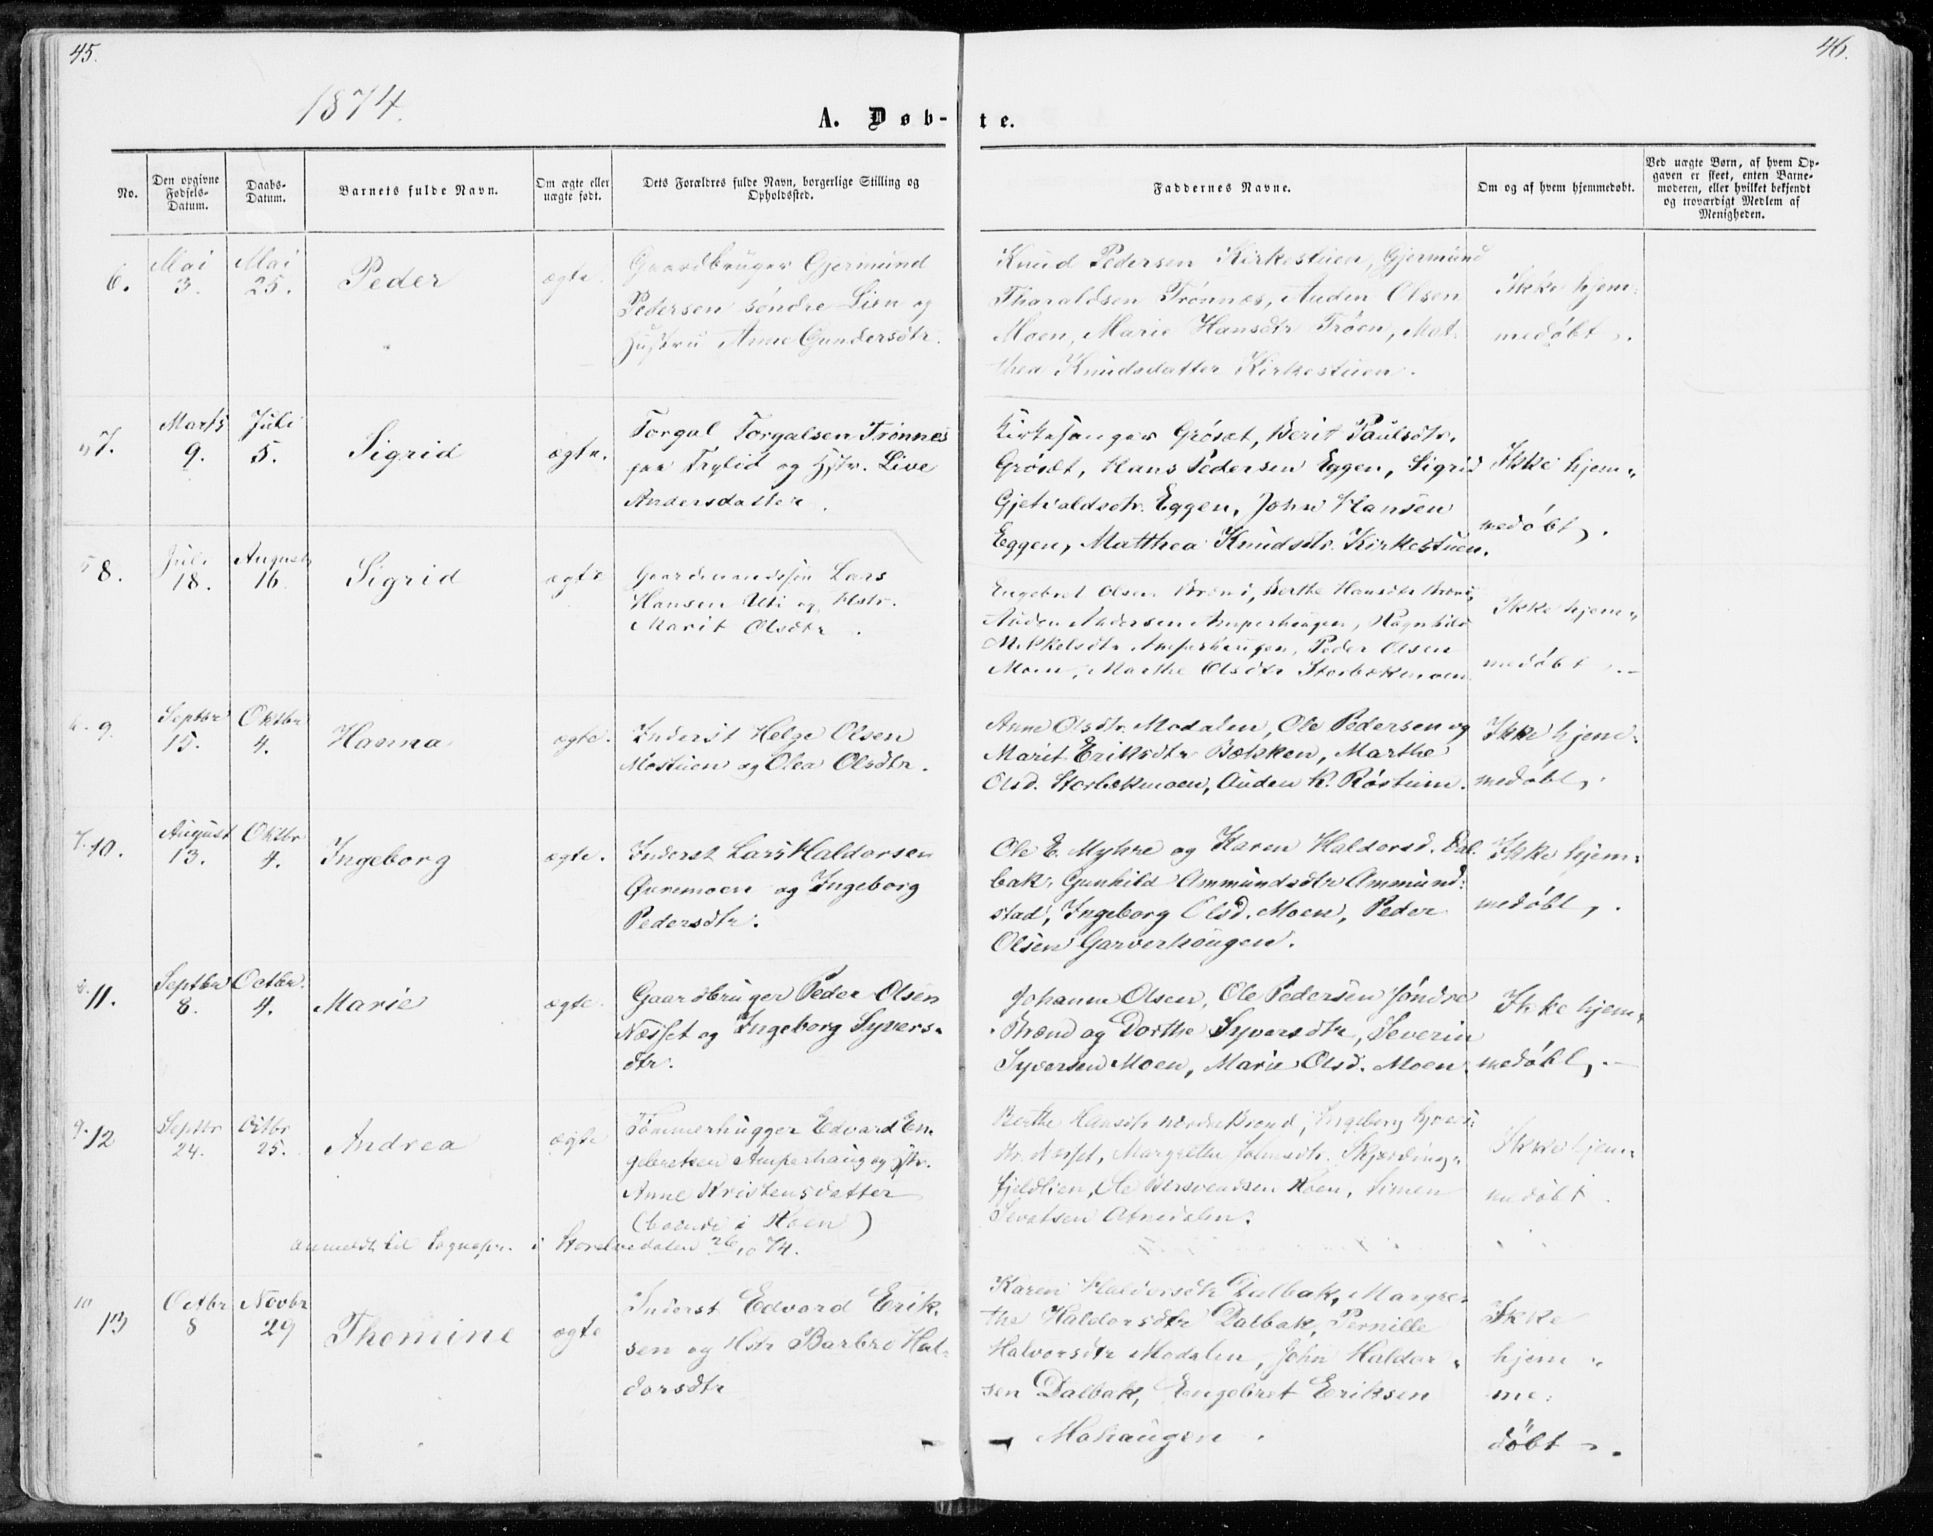 45.
46.
1874.
A. Døb-
te.
No.
Den opgivne Fødsels-Datum.
Daabs-Datum.
Barnets fulde Navn.
Om ægte eller uægte født.
Dets Forældres fulde Navn, borgerlige Stilling og Opholdssted.
Faddernes Navne.
Om og af hvem hjemmedøbt.
Ved uægte Børn, af hvem Opgaven er skeet, enten Barnemoderen, eller hvilket bekjendt og troværdigt Medlem af Menigheden.
6.
Mai 3.
Mai 25.
Peder
ægte.
Gaardbruger Gjermund
Pedersen søndre Lien og
Hustru Anne Gundersdtr.
Knud Pedersen Kirkestuen, Gjermund
Tharaldsen Trønnes, Auden Olsen
Moen, Marie Hansdtr Trøen, Mat-
thea Knudsdatter Kirkestuen.
Ikke hjem-
medøbt.
7.
Marts 9.
Juli 5.
Sigrid
ægte.
Torgal Torgalsen Trønnes
paa Trylid og Hstr. Live
Andersdatter.
Kirkesanger Grøsæt, Berit Paulsdtr.
Grøsæt, Hans Pedersen Eggen, Sigrid
Gjetvaldsdtr. Eggen, John Hansen
Eggen, Matthea Knudsdtr. Kirkestuen.
Ikke hjem-
medøbt.
8.
Juli 18.
August 16.
Sigrid
ægte
Gaardmandssøn Lars
Hansen Uti og Hstr.
Marit Olsdtr.
Engebret Olsen, Berthe Hansdtr
Auden Andersen Amperhaugen, Ragnhild
Mikkelsdtr Amperhaugen, Peder Olsen
Moen, Marthe Olsdtr Storbekmoen
Ikke hjem-
medøbt.
9.
Septbr 15.
Oktbr 4.
Hanna
ægte.
Inderst Helge Olsen
Mostuen og Olea Olsdtr.
Anne Olsdtr. Modalen, Ole Pedersen og
Marit Eriksdtr Bækken, Marthe
Olsd. Storbekmoen, Auden K. Røstuen.
Ikke hjem-
medøbt.
7. 10.
August 13.
Oktbr 4.
Ingeborg
ægte.
Inderst Lars Haldorsen
Øvremoen og Ingeborg
Pedersdtr.
Ole E. Myhre og Karen Haldorsd. Dal-
bak, Gunhild Ammundsdtr Ammund-
stad, Ingeborg Olsd. Moen, Peder
Olsen Garverhaugen.
Ikke hjem-
medøbt.
8. 11.
Septbr 8.
Octbr. 4.
Marie
ægte.
Gaardbruger Peder Olsen
Næsset og Ingeborg Syvers-
dtr.
Johanne Olsen, Ole Pedersen søndre
Strænd og Dorthe Syversdtr, Severin
Syversen Moen, Marie Olsd. Moen.
Ikke hjem-
medøbt.
9. 12
Septbr 24.
Octbr 25.
Andrea
ægte
Tømmerhugger Edvard En-
gebretsen Amperhaug og Hstr.
Anne Kristensdatter
(boende i Koen)
anmeldt til Sognepr. i Storelvedalen 26/10 74.
Berthe Hansdtr, Ingeborg Syvers-
dtr. Næsset, Margrethe Johnsdtr. Skjærding-
fjeldlien, Ole Bersvendsen Koen, Simen
Sevatsen Atnedalen.
Ikke hjem-
medøbt.
10 13
Octbr 8
Novbr 29
Thomine
ægte
Inderst Edvard Erik-
sen og Hstr Barbro Hal-
dorsdtr
Karen Haldorsdtr Dalbak, Margre-
the Haldorsdtr Dalbak, Pernille
Halvorsdtr Modalen, John Haldor-
sen Dalbak, Engebret Eriksen
Mohaugen.
Ikke
hjem-
me-
døbt.